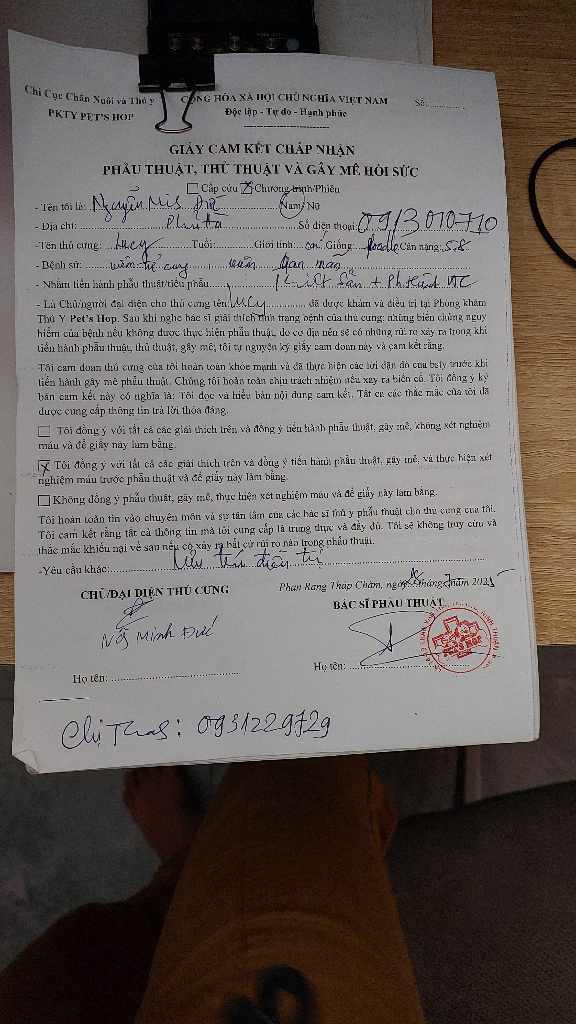 Chi Cục Chăn Nuôi và Thú y
PKTY PET'S HOP
CỘNG HÒA XÃ HỘI CHỦ NGHĨA VIỆT NAM
Độc lập - Tự do - Hạnh phúc
Số:
GIẤY CAM KẾT CHẤP NHẬN
PHẪU THUẬT, THỦ THUẬT VÀ GÂY MÊ HỒI SỨC
Cấp cứu Chương trình/Phiên
- Tên tôi là: Nguyễn Đức Nam/ Nữ
- Địa chỉ: Số điện thoại: 0913010710
-Tên thú cưng: Lucy Tuổi: Giới tính: cái Giống: Poodle Cân nặng: 5.8
- Bệnh sử: viêm tử cung, viêm gan mãn
- Nhằm tiến hành phẫu thuật/tiểu phẫu
- Là Chủ/người đại diện cho thú cưng tên: Lucy đã được khám và điều trị tại Phòng khám
Thú Y Pet's Hop. Sau khi nghe bác sĩ giải thích tình trạng bệnh của thú cưng; những biến chứng nguy
hiểm của bệnh nếu không được thực hiện phẫu thuật, do cơ địa nên sẽ có những rủi ro xảy ra trong khi
tiến hành phẫu thuật, thủ thuật, gây mê; tôi tự nguyện ký giấy cam đoan này và cam kết rằng.
Tôi cam đoan thú cưng của tôi hoàn toàn khỏe mạnh và đã thực hiện các lời dặn dò của bsty trước khi
tiến hành gây mê phẫu thuật. Chúng tôi hoàn toàn chịu trách nhiệm nếu xảy ra biến cố. Tôi đồng ý ký
bản cam kết này có nghĩa là: Tôi đọc và hiểu bản nội dung cam kết. Tất cả các thắc mắc của tôi đã
được cung cấp thông tin trả lời thỏa đáng.
Tôi đồng ý với tất cả các giải thích trên và đồng ý tiến hành phẫu thuật, gây mê, không xét nghiệm
máu và để giấy này làm bằng.
Tôi đồng ý với tất cả các giải thích trên và đồng ý tiến hành phẫu thuật, gây mê, và thực hiện xét
nghiệm máu trước phẫu thuật và để giấy này làm bằng.
Không đồng ý phẫu thuật, gây mê, thực hiện xét nghiệm máu và để giấy này làm bằng.
Tôi hoàn toàn tin vào chuyên môn và sự tận tâm của các bác sĩ thú y phẫu thuật cho thú cưng của tôi.
Tôi cam kết rằng tất cả thông tin mà tôi cung cấp là trung thực và đầy đủ. Tôi sẽ không truy cứu và
thắc mắc khiếu nại về sau nếu có xảy ra bất cứ rủi ro nào trong phẫu thuật.
-Yêu cầu khác: Lưu trú điều trị
CHỦ/ĐẠI DIỆN THÚ CƯNG
Phan Rang Tháp Chàm, ngày 28 tháng 7 năm 2025
BÁC SĨ PHẪU THUẬT
Minh Đức
PET'S HOP
Họ tên:
Họ tên:
Chị Thao: 0931229729